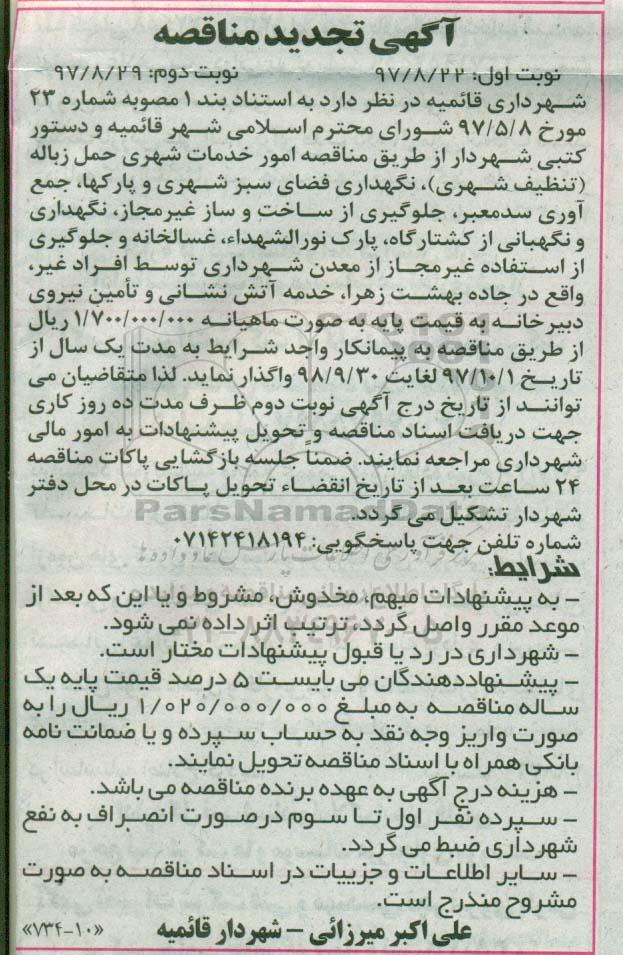 آگهی تجدید مناقصه
نوبت اول: ۹۷/۸/۲۲ نوبت دوم: ۹۷/۸/۲۹
شهرداری قائمیه در نظر دارد به استناد بند ۱ مصوبه شماره ۲۳
مورخ ۹۷/۵/۸ شورای محترم اسلامی شهر قائمیه و دستور
کتبی شهردار از طریق مناقصه امور خدمات شهری حمل زباله
(تنظیف شهری)، نگهداری فضای سبز شهری و پارکها، جمع
آوری سدمعبر، جلوگیری از ساخت و ساز غیرمجاز، نگهداری
و نگهبانی از کشتارگاه، پارک نورالشهداء، غسالخانه و جلوگیری
از استفاده غیرمجاز از معدن شهرداری توسط افراد غیر،
واقع در جاده بهشت زهرا، خدمه آتش نشانی و تأمین نیروی
دبیرخانه به قیمت پایه به صورت ماهیانه ۱/۷۰۰/۰۰۰/۰۰۰ ریال
از طریق مناقصه به پیمانکار واجد شرایط به مدت یک سال از
تاریخ ۹۷/۱۰/۱ لغایت ۹۸/۹/۳۰ واگذار نماید. لذا متقاضیان می
توانند از تاریخ درج آگهی نوبت دوم ظرف مدت ده روز کاری
جهت دریافت اسناد مناقصه و تحویل پیشنهادات به امور مالی
شهرداری مراجعه نمایند. ضمنا جلسه بازگشایی پاکات مناقصه
۲۴ ساعت بعد از تاریخ انقضاء تحویل پاکات در محل دفتر
شهردار تشکیل می گردد.
ParsNamadData
شماره تلفن جهت پاسخگویی: ۰۷۱۴۲۴۱۸۱۹۴
شرایط:
- به پیشنهادات مبهم، مخدوش، مشروط و یا این که بعد از
موعد مقرر واصل گردد، ترتیب اثر داده نمی شود.
- شهرداری در رد یا قبول پیشنهادات مختار است.
- پیشنهاددهندگان می بایست ۵ درصد قیمت پایه یک
ساله مناقصه به مبلغ ۱/۰۲۰/۰۰۰/۰۰۰ ریال را به
صورت واریز وجه نقد به حساب سپرده و یا ضمانت نامه
بانکی همراه با اسناد مناقصه تحویل نمایند.
- هزینه درج آگهی به عهده برنده مناقصه می باشد.
- سپرده نفر اول تا سوم درصورت انصراف به نفع
شهرداری ضبط می گردد.
- سایر اطلاعات و جزییات در اسناد مناقصه به صورت
مشروح مندرج است.
علی اکبر میرزائی - شهردار قائمیه «۷۳۴-۱۰»